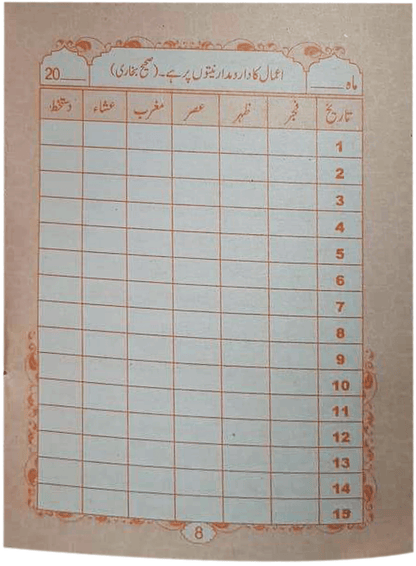 ماہ______ اعمال کا دارومدار نیتوں پر ہے۔ (صحیح بخاری) ______20
تاریخ فجر ظہر عصر مغرب عشاء دستخط
1
2
3
4
5
6
7
8
9
10
11
12
13
14
15
8